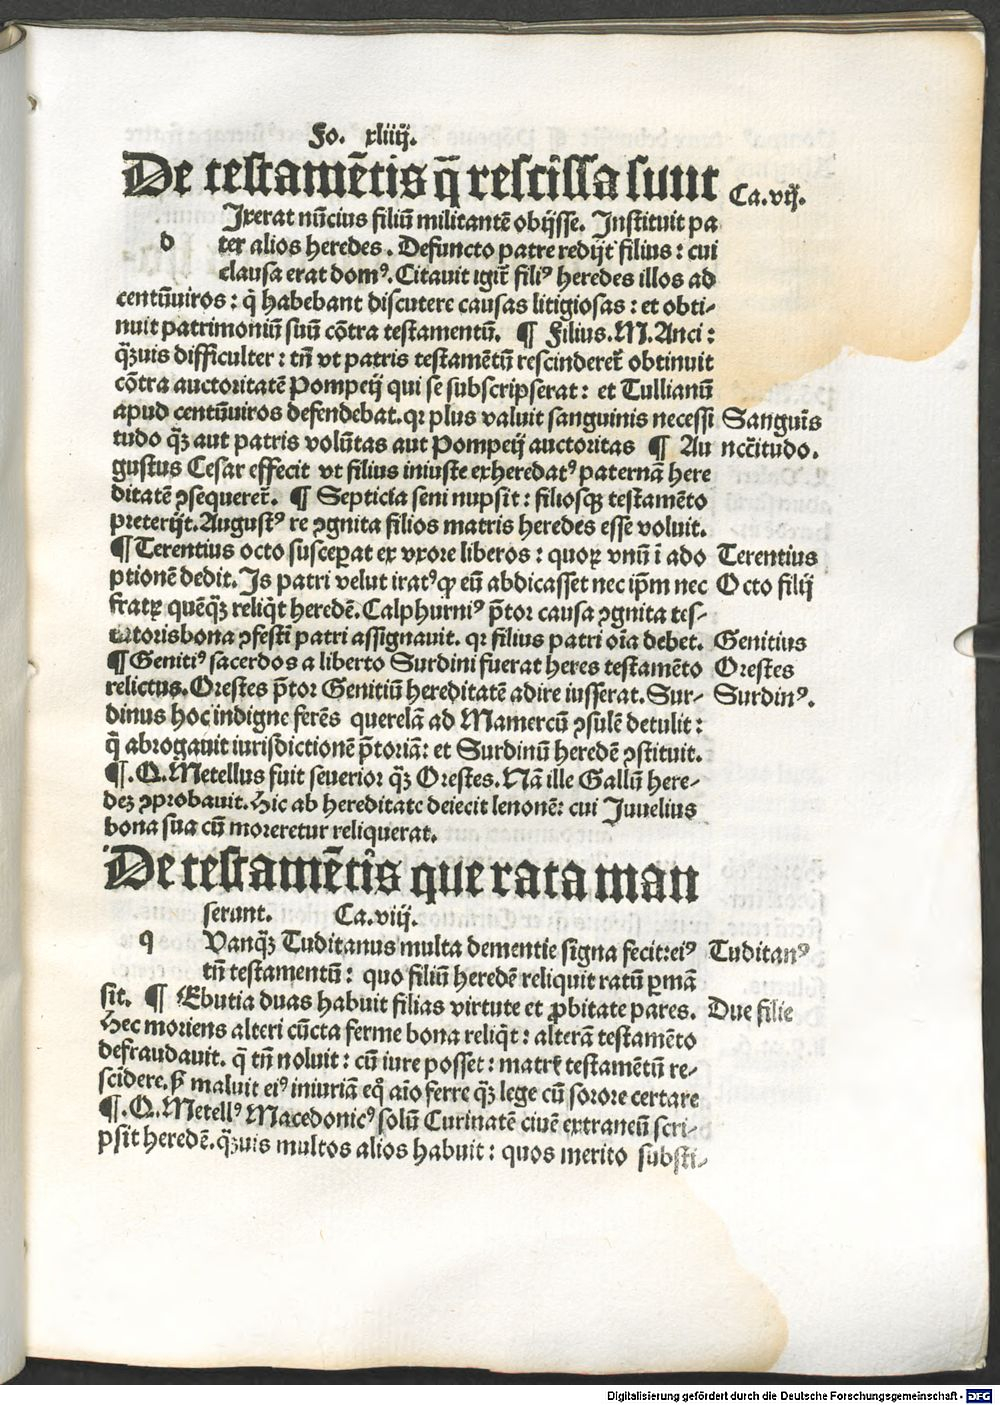 Fo. xliiij.
De testamētis q̄ rescissa sunt Ca.vij.
Ixerat nūcius filiū militantē obijsse. Instituit pa
d ter alios heredes. Defuncto patre redijt filius: cui
clausa erat domꝰ. Citauit igit᷑ filiꝰ heredes illos ad
centūuiros: q̇ habebant discutere causas litigiosas: et obti-
nuit patrimoniū suū cōtra testamentū. ¶ Filius. M. Anci:
q̄ꝫuis difficulter: tn̄ vt patris testamētū rescinderet᷑ obtinuit
cōtra auctoritatē Pompeij qui se subscripserat: et Tullianū
apud centūuiros defendebat. qꝛ plus valuit sanguinis necessi Sanguīs
tudo q̄ꝫ aut patris volūtas aut Pompeij auctoritas ¶ Au nccītudo.
gustus Cesar effecit vt filius iniuste exheredatꝰ paternā here
ditatē ꝯsequeret᷑. ¶ Septicia seni nupsit: filiosqꝫ testamēto
preterijt. Augustꝰ re ꝯgnita filios matris heredes esse voluit.
¶ Terentius octo suscepat ex vxore liberos: quoꝝ vnū ī ado Terentius
ptionē dedit. Is patri velut iratꝰ ꝙ eū abdicasset nec ip̄m nec Octo filij
fratꝝ quēq̄ꝫ reliq̇t heredē. Calphurniꝰ p̄tor causa ꝯgnita tes-
tatoris bona ꝯfestī patri assignauit. qꝛ filius patri oīa debet. Genitius
¶ Genitiꝰ sacerdos a liberto Surdini fuerat heres testamēto Orestes
relictus. Orestes p̄tor Genitiū hereditatē adire iusserat. Sur- Surdinꝰ.
dinus hoc indigne ferēs querelā ad Mamercū ꝯsulē detulit:
q̇ abrogauit iurisdictionē p̄toriā: et Surdinū heredē ꝯstituit.
¶. Q. Metellus fuit seuerior q̄ꝫ Orestes. Nā ille Gallū here-
deꝫ ꝯprobauit. Hic ab hereditate deiecit lenonē: cui Juuelius
bona sua cū moreretur reliquerat.
De testamētis que rata man
serunt. Ca.viij.
q Vanq̄ꝫ Tuditanus multa dementie signa fecit: eiꝰ Tuditanꝰ
tn̄ testamentū: quo filiū heredē reliquit ratū ꝑmā
sit. ¶ Ebutia duas habuit filias virtute et ꝓbitate pares. Due filie
Hec moriens alteri cūcta ferme bona reliq̇t: alterā testamēto
defraudauit. q̄ tn̄ noluit: cū iure posset: matrꝭ testamētū re-
scīdere. sꝫ maluit eiꝰ iniuriā eq̇ aīo ferre q̄ꝫ lege cū sorore certare
¶. Q. Metellꝰ Macedonicꝰ solū Curinatē ciuē extraneū scri-
psit heredē. q̄ꝫuis multos alios habuit: quos merito substi-
Digitalisierung gefördert durch die Deutsche Forschungsgemeinschaft - DFG